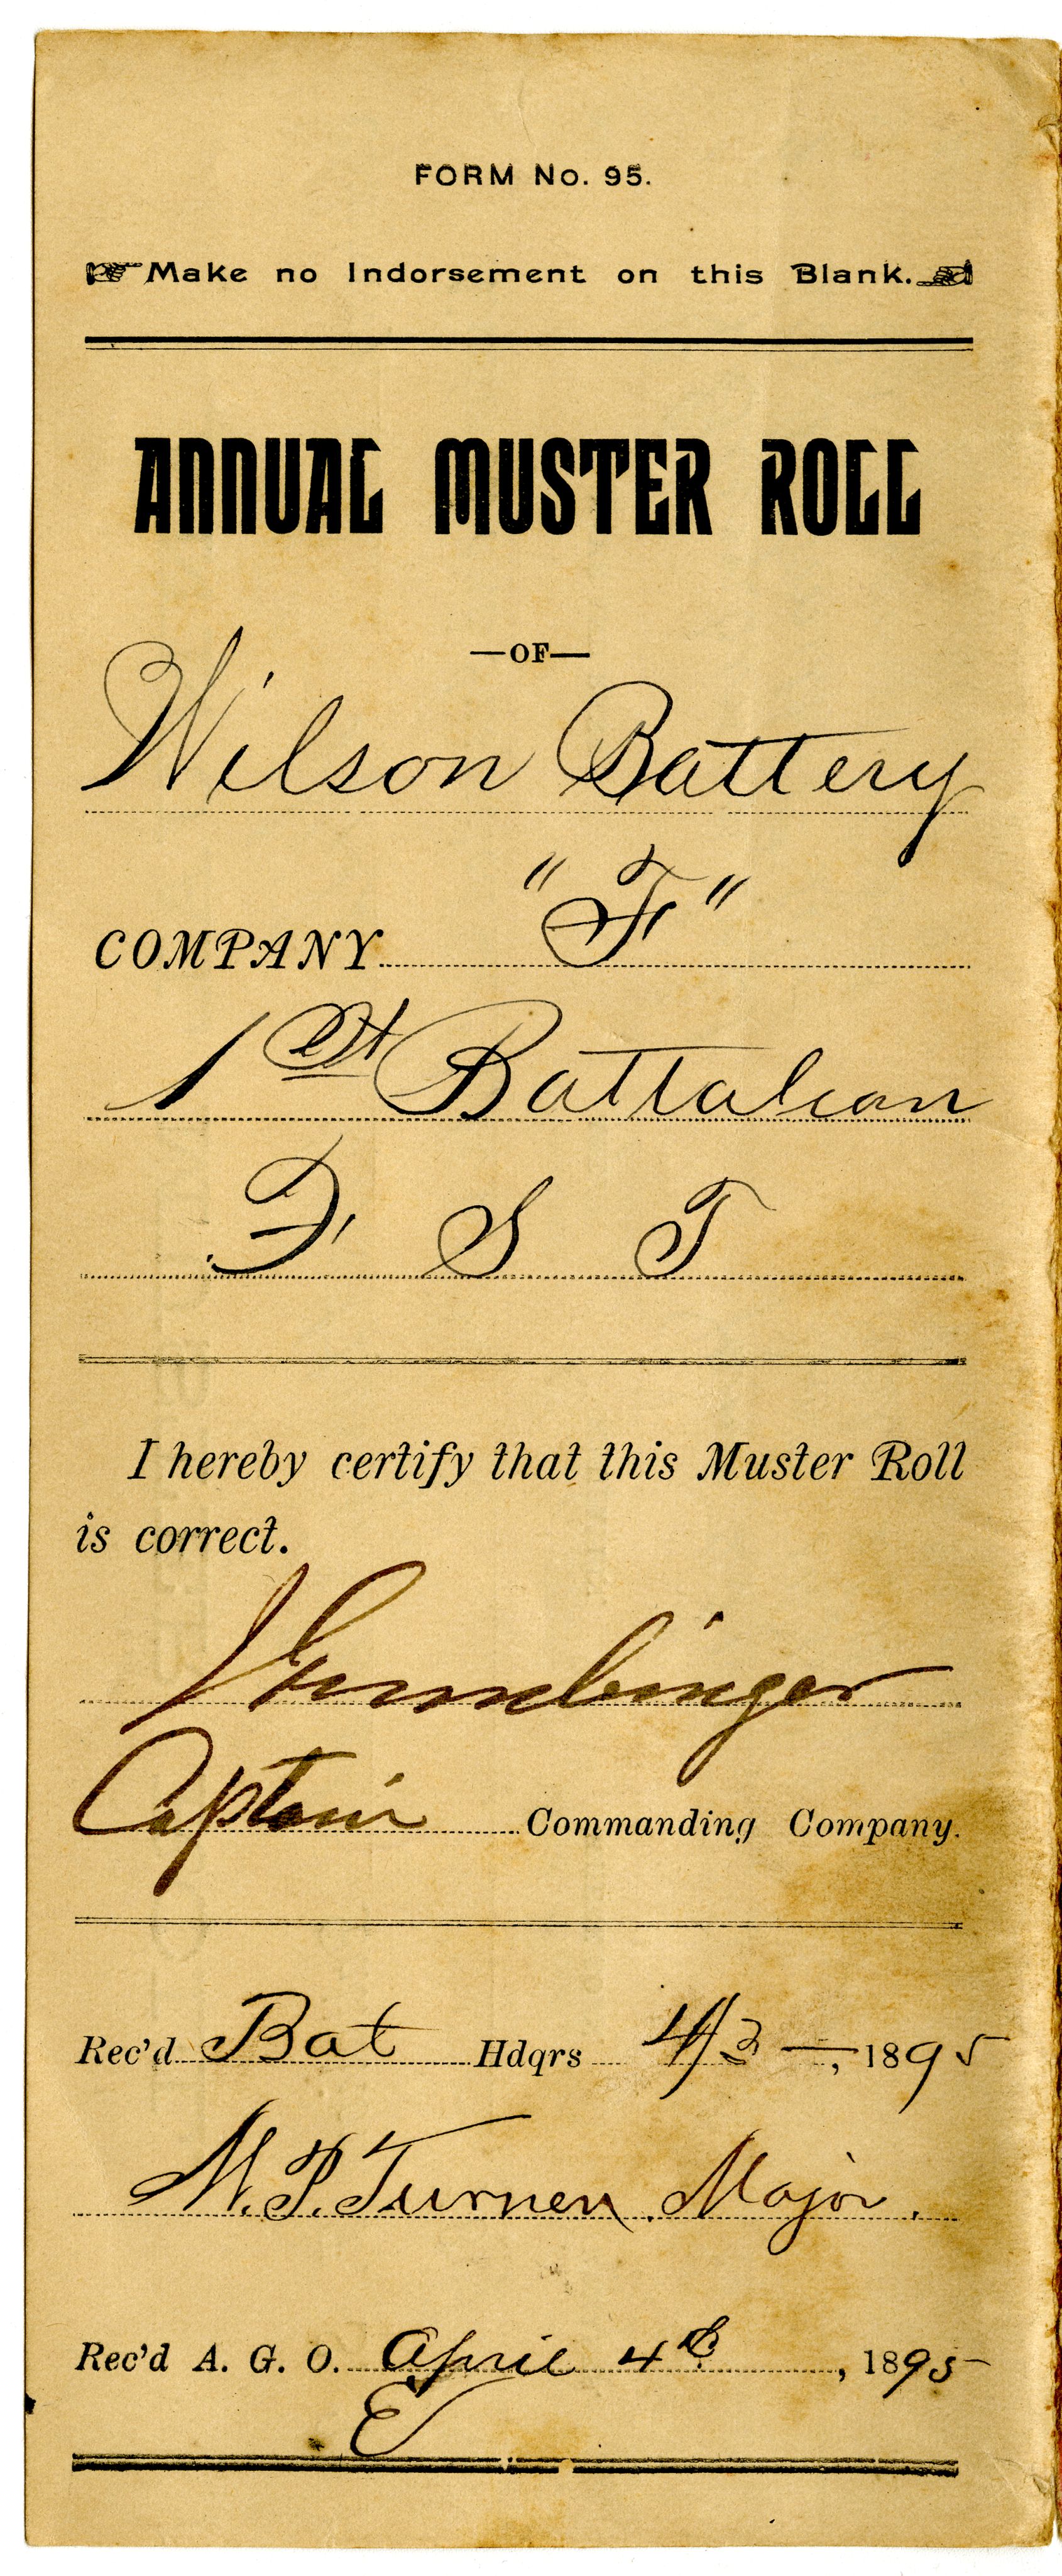 FORM No. 95.
Make no Indorsement on this Blank.
ANNUAL MUSTER ROLL
—OF—
Wilson Battery
COMPANY "F"
1st Battalion
F S T
I hereby certify that this Muster Roll
is correct.
Captain Commanding Company.
Rec'd Bat Hdqrs 4/3 —, 1895
M. P. Turner, Major.
Rec'd A. G. O. April 4th, 1895